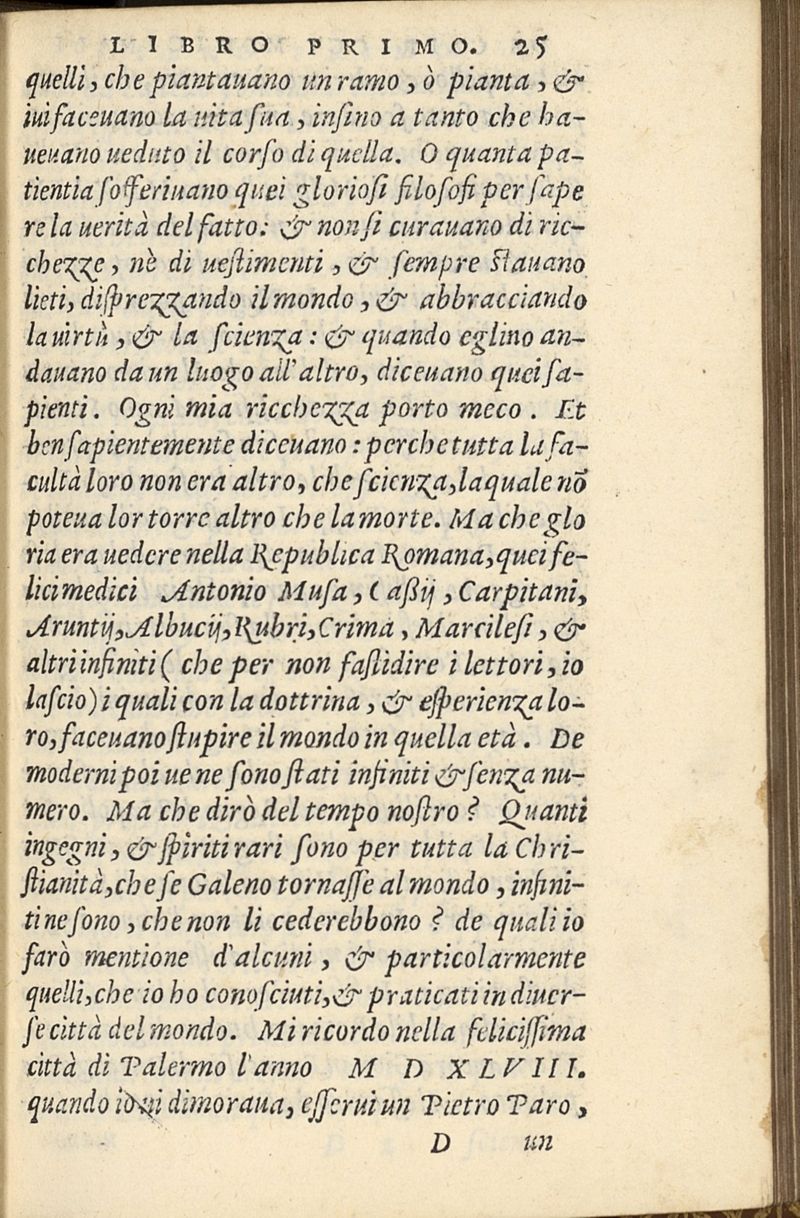 LIBRO PRIMO. 25
quelli, che piantauano un ramo, ò pianta, &
iui faceuano la uita ſua, inſino a tanto che ha-
ueuano ueduto il corſo di quella. O quanta pa-
tientia ſofferiuano quei glorioſi filoſofi per ſape
re la uerità del fatto: & non ſi curauano di ric-
chezze, nè di ueſtimenti, & ſempre ſtauano
lieti, diſprezzando il mondo, & abbracciando
la uirtù, & la ſcienza: & quando eglino an-
dauano da un luogo all'altro, diceuano quei ſa-
pienti. Ogni mia ricchezza porto meco. Et
ben ſapientemente diceuano: perche tutta la fa-
cultà loro non era altro, che ſcienza, laquale nõ
poteua lor torre altro che la morte. Ma che glo
ria era uedere nella Republica Romana, quei fe-
lici medici Antonio Muſa, Caßij, Carpitani,
Aruntij, Albucij, Rubri, Crima, Marcileſi, &
altri infiniti (che per non faſtidire i lettori, io
laſcio) i quali con la dottrina, & eſperienza lo-
ro, faceuano ſtupire il mondo in quella età. De
moderni poi ue ne ſono ſtati infiniti & ſenza nu-
mero. Ma che dirò del tempo noſtro? Quanti
ingegni, & ſpiriti rari ſono per tutta la Chri-
ſtianità, che ſe Galeno tornaſſe al mondo, infini-
ti ne ſono, che non li cederebbono? de quali io
farò mentione d'alcuni, & particolarmente
quelli, che io ho conoſciuti, & praticati in diuer-
ſe città del mondo. Mi ricordo nella feliciſſima
città di Palermo l'anno M D XLVIII.
quando io ui dimoraua, eſſerui un Pietro Paro,
D un